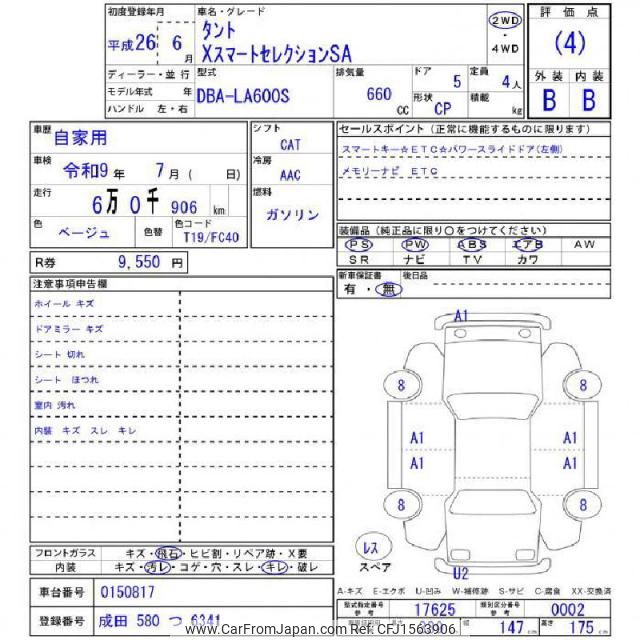 初度登録年月
平成26 6月
車名・グレード
タント
XスマートセレクションSA
2WD
・
4WD
評価点
(4)
外装 内装
B B
ディーラー・並行
モデル年式 年
ハンドル 左・右
型式
DBA-LA600S
排気量
660 CC
ドア 5
定員 4人
形状 CP
積載 kg
車歴 自家用
車検 令和9年 7月( 日)
走行 6万0千906 km
色 ベージュ
色替
色コード T19/FC40
シフト
CAT
冷房
AAC
燃料
ガソリン
セールスポイント(正常に機能するものに限ります)
スマートキー☆ETC☆パワースライドドア(左側)
メモリーナビ ETC
装備品(純正品に限り○をつけてください)
PS PW ABS エアB AW
SR ナビ TV カワ
新車保証書
有・無
後日品
R券 9,550 円
注意事項申告欄
ホイール キズ
ドアミラー キズ
シート 切れ
シート ほつれ
室内 汚れ
内装 キズ スレ キレ
フロントガラス キズ・飛石・ヒビ割・リペア跡・X要
内装 キズ・汚レ・コゲ・穴・スレ・キレ・破レ
車台番号 0150817
登録番号 成田 580 つ 6341
A1
8 8
A1 A1
A1 A1
8 8
レス
スペア
U2
A-キズ E-エクボ U-凹み W-補修跡 S-サビ C-腐食 XX-交換済
型式指定番号 参考 17625
類別区分番号 参考 0002
147 cm
高さ 175 cm
www.CarFromJapan.com Ref:CFJ1563906